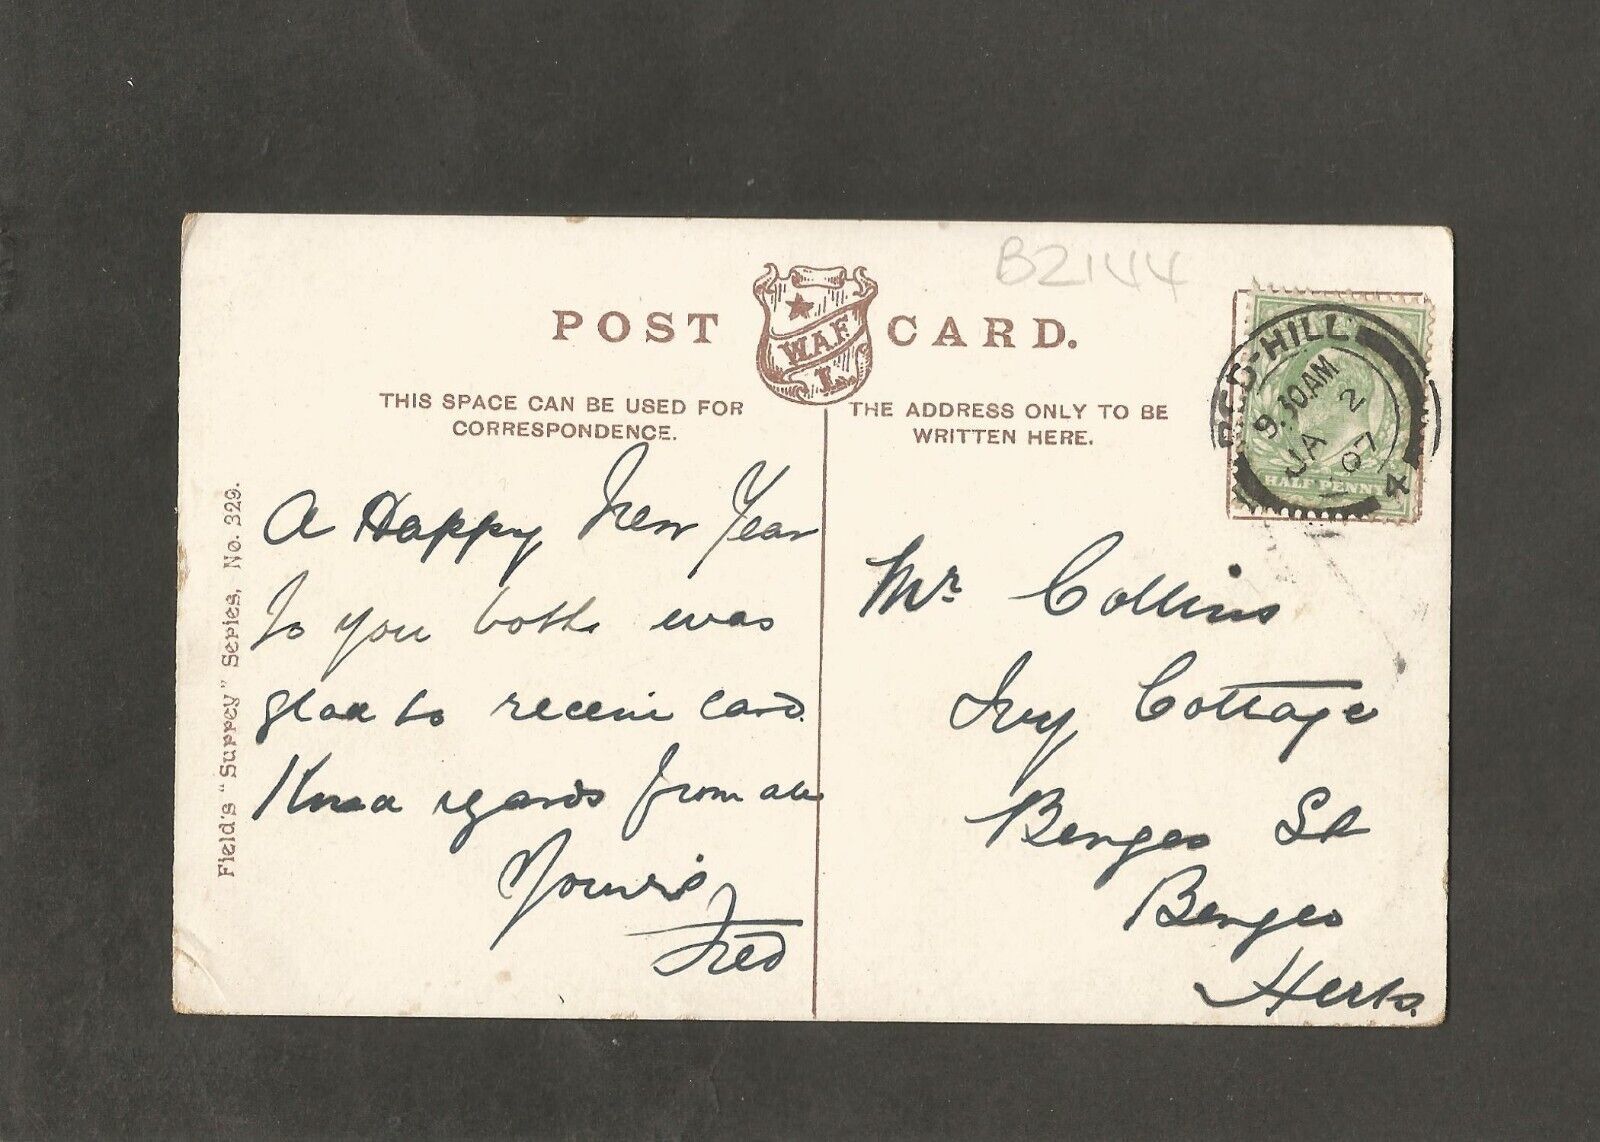 B2144
POST CARD.
W.A.F.
L.
THIS SPACE CAN BE USED FOR
CORRESPONDENCE.
THE ADDRESS ONLY TO BE
WRITTEN HERE.
RED-HILL
9.30AM
JA 2
07
4
HALF PENNY
Field's "Surrey" Series, No. 329.
A Happy New Year
To you both was
glad to receive card.
Kind regards from all
Yours
Fred
Mr. Collins
Ivy Cottage
Bengeo St
Bengeo
Herts.